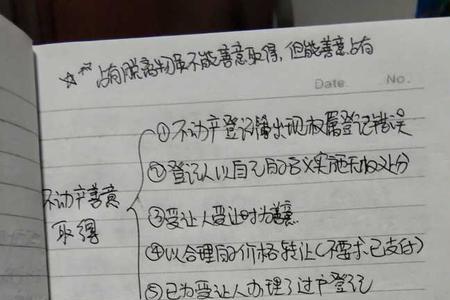 ☆☆ 占有脱离物虽不能善意取得,但能善意占有
Date. No.
①不动产登记簿出现权属登记错误
②登记人以自己的名义实施无权处分
不动产善意
取得
③受让人受让时为善意
④以合理的价格转让(不要求已支付)
⑤已为受让人办理了过户登记